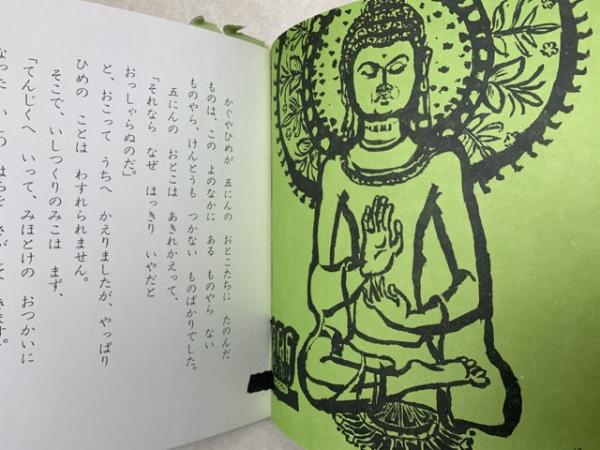 かぐやひめが 五にんの おとこたちに たのんだ
ものは、この よのなかに ある ものやら ない
ものやら、けんとうも つかない ものばかりでした。
五にんの おとこは あきれかえって、
「それなら なぜ はっきり いやだと
おっしゃらぬのだ。」
と、おこって うちへ かえりましたが、やっぱり
ひめの ことは わすれられません。
そこで、いしつくりのみこは まず、
「てんじくへ いって、みほとけの おつかいに
なった いしの はちを さがして きます。